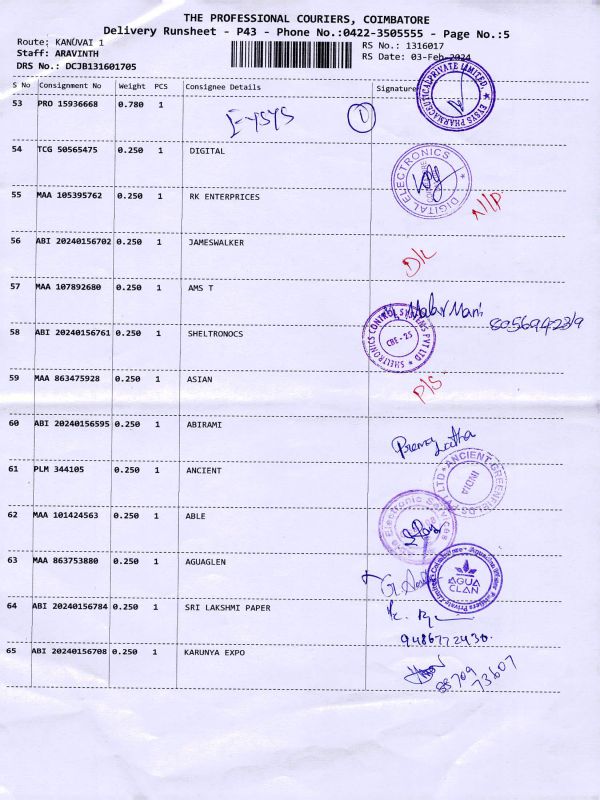 THE PROFESSIONAL COURIERS, COIMBATORE
Delivery Runsheet - P43 - Phone No.:0422-3505555 - Page No.:5
Route: KANUVAI 1
Staff: ARAVINTH
DRS No.: DCJB131601705
RS No.: 1316017
RS Date: 03-Feb-2024
S No Consignment No Weight PCS Consignee Details Signature
53 PRO 15936668 0.780 1 EYSYS 1
ETSYS PHARMACEUTICALPRIVATE LIMITED.
54 TCG 50565475 0.250 1 DIGITAL
DIGITAL ELECTRONICS
55 MAA 105395762 0.250 1 RK ENTERPRICES N/P
56 ABI 20240156702 0.250 1 JAMESWALKER D/L
57 MAA 107892680 0.250 1 AMS T
8056942319
58 ABI 20240156761 0.250 1 SHELTRONOCS
SHELTRONICS CONTROL SYSTEMS PVT LTD
CBE - 25
59 MAA 863475928 0.250 1 ASIAN P/S
60 ABI 20240156595 0.250 1 ABIRAMI Prema Latha
61 PLM 344105 0.250 1 ANCIENT
ANCIENT GREENFIELDS PVT LTD
INDIA
62 MAA 101424563 0.250 1 ABLE
Electronic Services
63 MAA 863753880 0.250 1 AGUAGLEN
AGUA CLAN
64 ABI 20240156784 0.250 1 SRI LAKSHMI PAPER
9486772430.
65 ABI 20240156708 0.250 1 KARUNYA EXPO
88709
73607